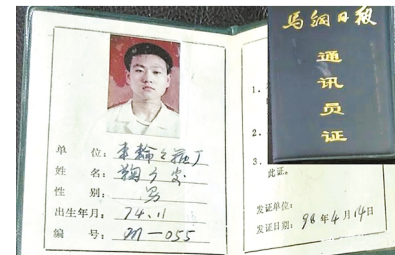 马钢日报
通讯员证
单 位:车轮轮箍厂
姓 名:鞠
性 别:男
出生年月:74.11
编 号:M-055
1.
2.
3.
此证。
发证单位:
发证日期:98年4月14日